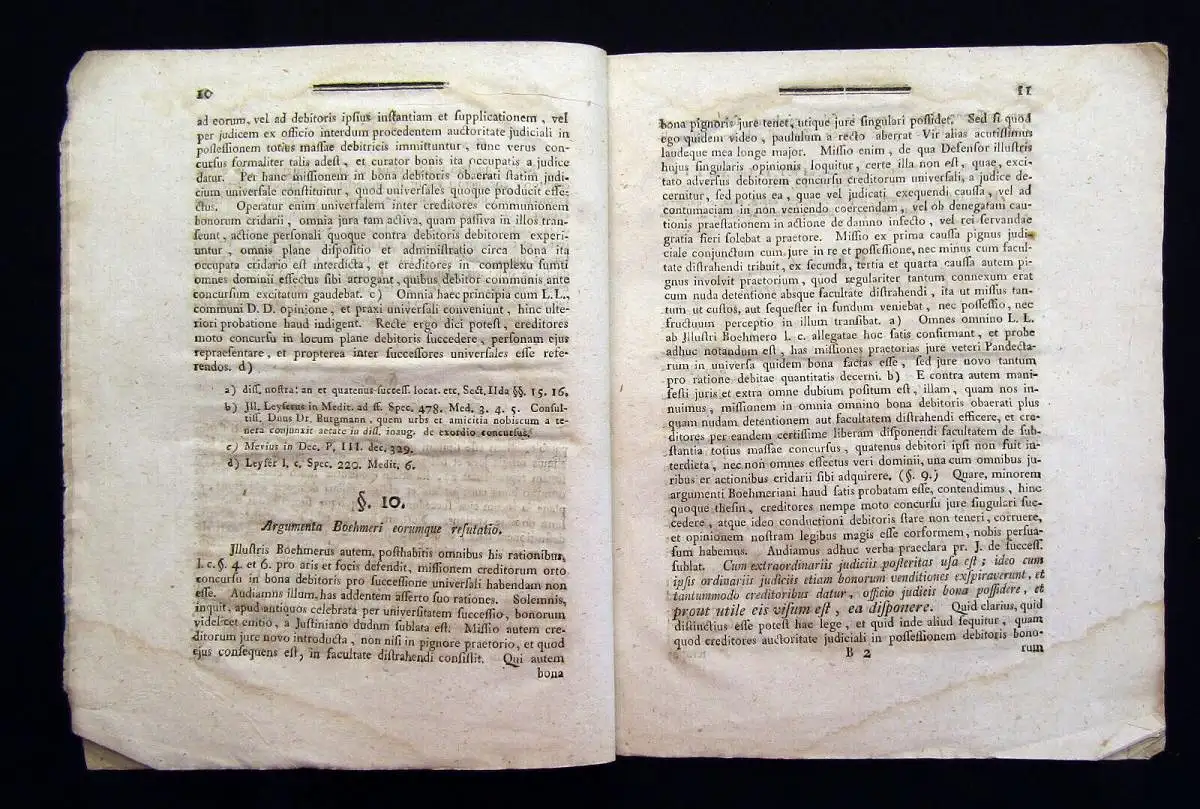 10
ad eorum, vel ad debitoris ipſius inſtantiam et ſupplicationem, vel
per judicem ex officio interdum procedentem auctoritate judiciali in
poſſeſſionem totius maſſae debitricis immittuntur, tunc verus con-
curſus formaliter talis adeſt, et curator bonis ita occupatis a judice
datur. Per hanc miſſionem in bona debitoris obaerati ſtatim judi-
cium univerſale conſtituitur, quod univerſales quoque producit effe-
ctus. Operatur enim univerſalem inter creditores communionem
bonorum cridarii, omnia jura tam activa, quam paſſiva in illos tran-
ſeunt, actione perſonali quoque contra debitoris debitorem experi-
untur, omnis plane diſpoſitio et adminiſtratio circa bona ita
occupata cridario eſt interdicta, et creditores in complexu ſumti
omnes dominii effectus ſibi arrogant, quibus debitor communis ante
concurſum excitatum gaudebat. c) Omnia haec principia cum L. L.,
communi D. D. opinione, et praxi univerſali conveniunt, hinc ulte-
riori probatione haud indigent. Recte ergo dici poteſt, creditores
moto concurſu in locum plane debitoris ſuccedere, perſonam ejus
repraeſentare, et propterea inter ſucceſſores univerſales eſſe refe-
rendos. d)
a) diſſ. noſtra: an et quatenus ſucceſſ. locat. etc. Sect. IIda §§. 15. 16.
b) Jll. Leyſerus in Medit. ad ff. Spec. 478. Med. 3. 4. 5. Conſul-
tiſſ. Dnus Dr. Burgmann, quem urbs et amicitia nobiscum a te-
nera conjunxit aetate in diſſ. inaug. de exordio concurſus.
c) Mevius in Dec. P. III. dec. 329.
d) Leyſer l. c. Spec. 220. Medit. 6.
§. 10.
Argumenta Boehmeri eorumque refutatio.
Jlluſtris Boehmerus autem, poſthabitis omnibus his rationibus,
l. c. §. 4. et 6. pro aris et focis defendit, miſſionem creditorum orto
concurſu in bona debitoris pro ſucceſſione univerſali habendam non
eſſe. Audiamus illum, has addentem aſſerto ſuo rationes. Solemnis,
inquit, apud antiquos celebrata per univerſitatem ſucceſſio, bonorum
videlicet emtio, a Juſtiniano dudum ſublata eſt. Miſſio autem cre-
ditorum jure novo introducta, non niſi in pignore praetorio, et quod
ejus conſequens eſt, in facultate diſtrahendi conſiſtit. Qui autem
bona
11
bona pignoris jure tenet, utique jure ſingulari poſſidet. Sed ſi quod
ego quidem video, paululum a recto aberrat Vir alias acutiſſimus
laudeque mea longe major. Miſſio enim, de qua Defenſor illuſtris
hujus ſingularis opinionis loquitur, certe illa non eſt, quae, exci-
tato adverſus debitorem concurſu creditorum univerſali, a judice de-
cernitur, ſed potius ea, quae vel judicati exequendi cauſſa, vel ad
contumaciam in non veniendo coercendam, vel ob denegatam cau-
tionis praeſtationem in actione de damno infecto, vel rei ſervandae
gratia fieri ſolebat a praetore. Miſſio ex prima cauſſa pignus judi-
ciale conjunctum cum jure in re et poſſeſſione, nec minus cum facul-
tate diſtrahendi tribuit, ex ſecunda, tertia et quarta cauſſa autem pi-
gnus involvit praetorium, quod regulariter tantum connexum erat
cum nuda detentione absque facultate diſtrahendi, ita ut miſſus tan-
tum ut cuſtos, aut ſequeſter in fundum veniebat, nec poſſeſſio, nec
fructuum perceptio in illum transibat. a) Omnes omnino L. L.
ab Jlluſtri Boehmero l. c. allegatae hoc ſatis confirmant, et probe
adhuc notandum eſt, has miſſiones praetorias jure veteri Pandecta-
rum in univerſa quidem bona factas eſſe, ſed jure novo tantum
pro ratione debitae quantitatis decerni. b) E contra autem mani-
feſti juris et extra omne dubium poſitum eſt, illam, quam nos in-
nuimus, miſſionem in omnia omnino bona debitoris obaerati plus
quam nudam detentionem aut facultatem diſtrahendi efficere, et cre-
ditores per eandem certiſſime liberam diſponendi facultatem de ſub-
ſtantia totius maſſae concurſus, quatenus debitori ipſi non fuit in-
terdicta, nec non omnes effectus veri dominii, una cum omnibus ju-
ribus et actionibus cridarii ſibi adquirere. (§. 9.) Quare, minorem
argumenti Boehmeriani haud ſatis probatam eſſe, contendimus, hinc
quoque theſin, creditores nempe moto concurſu jure ſingulari ſuc-
cedere, atque ideo conductioni debitoris ſtare non teneri, corruere,
et opinionem noſtram legibus magis eſſe corformem, nobis perſua-
ſum habemus. Audiamus adhuc verba praeclara pr. J. de ſucceſſ.
ſublat. Cum extraordinariis judiciis poſteritas uſa eſt; ideo cum
ipſis ordinariis judiciis etiam bonorum venditiones exſpiraverunt, et
tantummodo creditoribus datur, officio judicis bona poſſidere, et
prout utile eis viſum eſt, ea diſponere. Quid clarius, quid
diſtinctius eſſe poteſt hac lege, et quid inde aliud ſequitur, quam
quod creditores auctoritate judiciali in poſſeſſionem debitoris bono-
B 2
rum